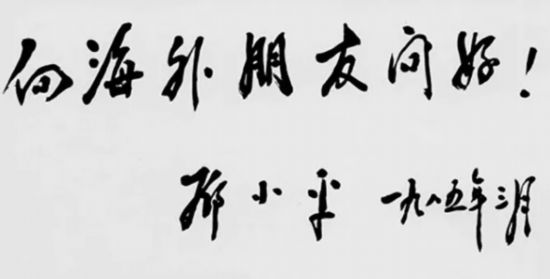 向海外朋友问好！
邓小平 一九八五年三月